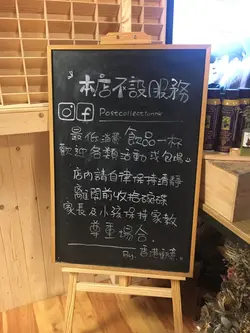 本店不設服務
Postcollection
最低消費 飲品一杯
歡迎各類活動或包場
店內請自律保持清靜
離開前收拾碗碟
家長及小孩保持家教
尊重場合